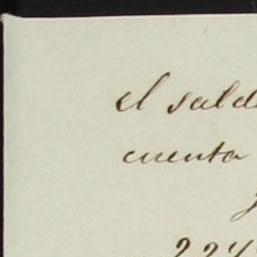 el sald
cuenta
224